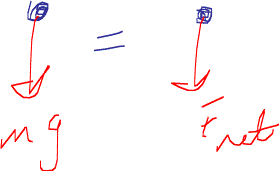 =
mg
F net